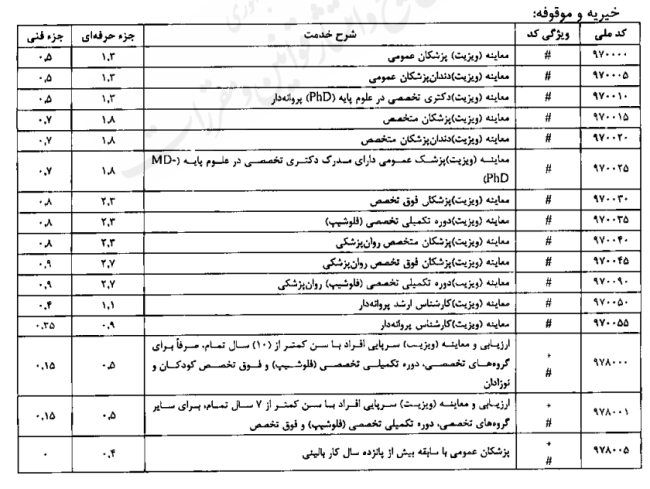 خیریه و موقوفه:
کد ملی | ویژگی کد | شرح خدمت | جزء حرفه‌ای | جزء فنی
۹۷۰۰۰۰ | # | معاینه (ویزیت) پزشکان عمومی | ۱٫۳ | ۰٫۵
۹۷۰۰۰۵ | # | معاینه (ویزیت)دندان‌پزشکان عمومی | ۱٫۳ | ۰٫۵
۹۷۰۰۱۰ | # | معاینه (ویزیت)دکتری تخصصی در علوم پایه (PhD) پروانه‌دار | ۱٫۳ | ۰٫۵
۹۷۰۰۱۵ | # | معاینه (ویزیت)پزشکان متخصص | ۱٫۸ | ۰٫۷
۹۷۰۰۲۰ | # | معاینه (ویزیت)دندان‌پزشکان متخصص | ۱٫۸ | ۰٫۷
۹۷۰۰۲۵ | # | معاینه (ویزیت)پزشک عمومی دارای مدرک دکتری تخصصی در علوم پایه (MD-
PhD) | ۱٫۸ | ۰٫۷
۹۷۰۰۳۰ | # | معاینه (ویزیت)پزشکان فوق تخصص | ۲٫۳ | ۰٫۸
۹۷۰۰۳۵ | # | معاینه (ویزیت)دوره تکمیلی تخصصی (فلوشیپ) | ۲٫۳ | ۰٫۸
۹۷۰۰۴۰ | # | معاینه (ویزیت)پزشکان متخصص روان‌پزشکی | ۲٫۳ | ۰٫۸
۹۷۰۰۴۵ | # | معاینه (ویزیت)پزشکان فوق تخصص روان‌پزشکی | ۲٫۷ | ۰٫۹
۹۷۰۰۹۰ | # | معاینه (ویزیت)دوره تکمیلی تخصصی (فلوشیپ) روان‌پزشکی | ۲٫۷ | ۰٫۹
۹۷۰۰۵۰ | # | معاینه (ویزیت)کارشناس ارشد پروانه‌دار | ۱٫۱ | ۰٫۴
۹۷۰۰۵۵ | # | معاینه (ویزیت)کارشناس پروانه‌دار | ۰٫۹ | ۰٫۳۵
۹۷۸۰۰۰ | + # | ارزیابی و معاینه (ویزیت) سرپایی افراد با سن کمتر از (۱۰) سال تمام، صرفاً برای
گروه‌های تخصصی، دوره تکمیلی تخصصی (فلوشیپ) و فوق تخصص کودکان و
نوزادان | ۰٫۵ | ۰٫۱۵
۹۷۸۰۰۱ | + # | ارزیابی و معاینه (ویزیت) سرپایی افراد با سن کمتر از ۷ سال تمام، برای سایر
گروه‌های تخصصی، دوره تکمیلی تخصصی (فلوشیپ) و فوق تخصص | ۰٫۵ | ۰٫۱۵
۹۷۸۰۰۵ | + # | پزشکان عمومی با سابقه بیش از پانزده سال کار بالینی | ۰٫۴ | ۰